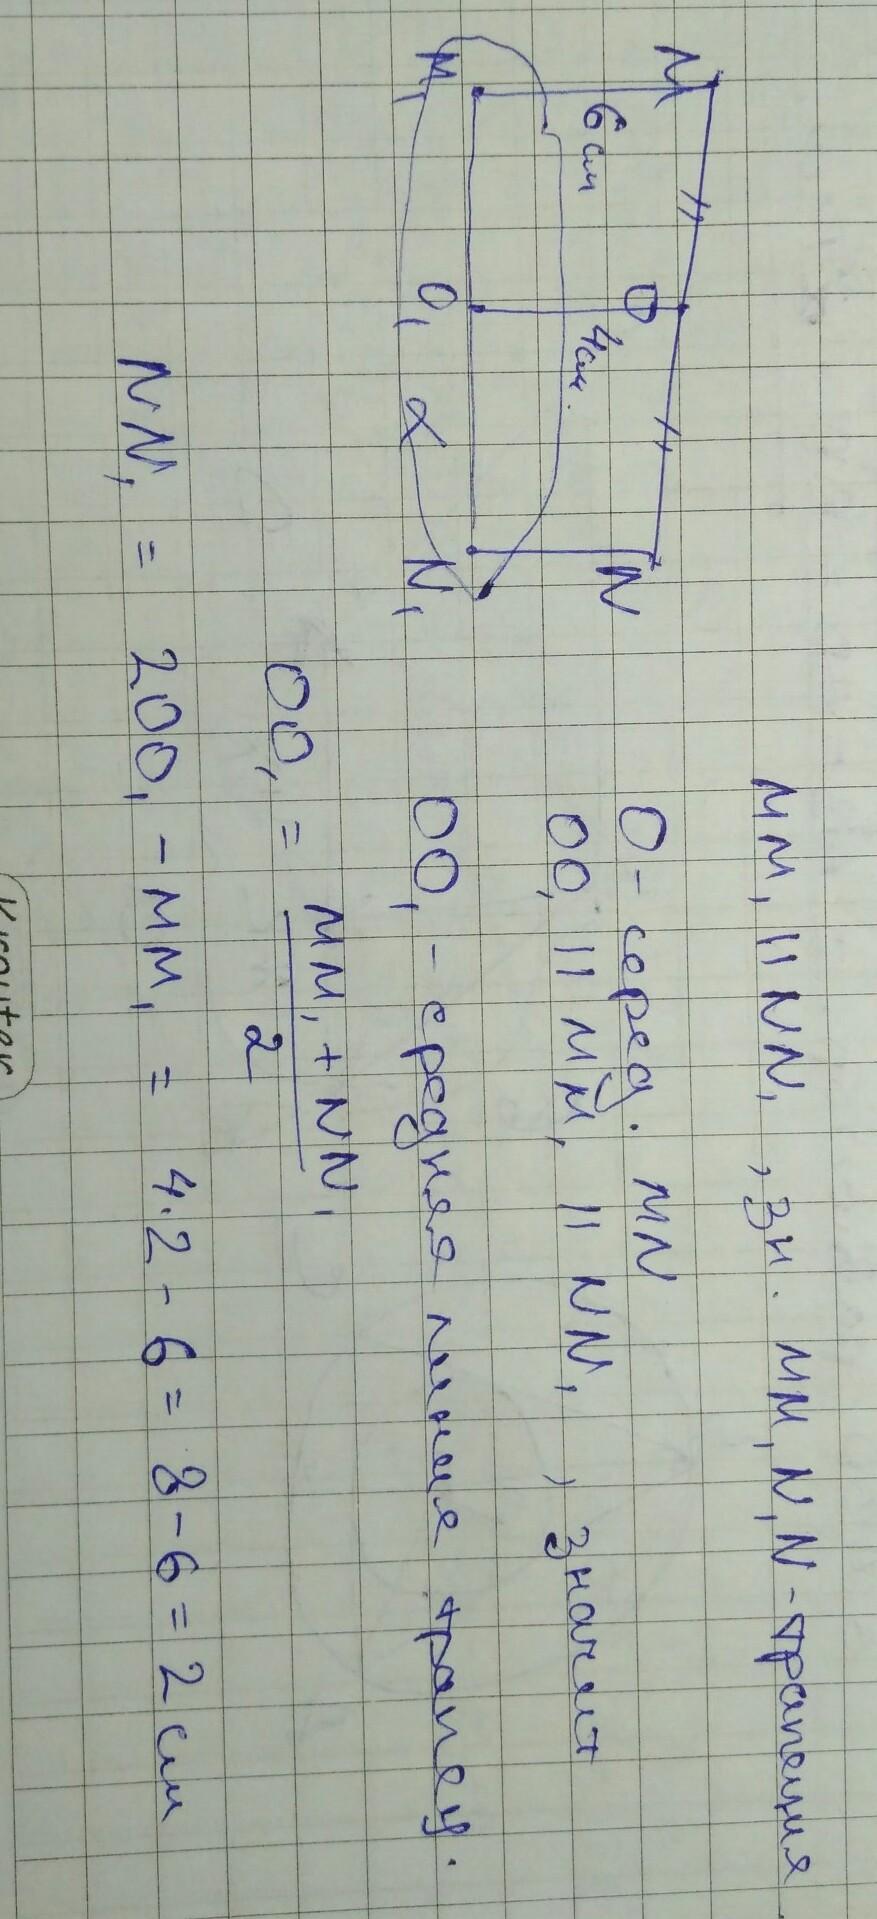 M
M₁
6 см
O
4 см.
O₁
α
N
N₁
MM₁ || NN₁, зн. MM₁N₁N - трапеция
O - серед. MN
OO₁ || MM₁ || NN₁, значит
OO₁ - средняя линия трапец.
OO₁ = MM₁ + NN₁ / 2
NN₁ = 2OO₁ - MM₁ = 4·2 - 6 = 8 - 6 = 2 см